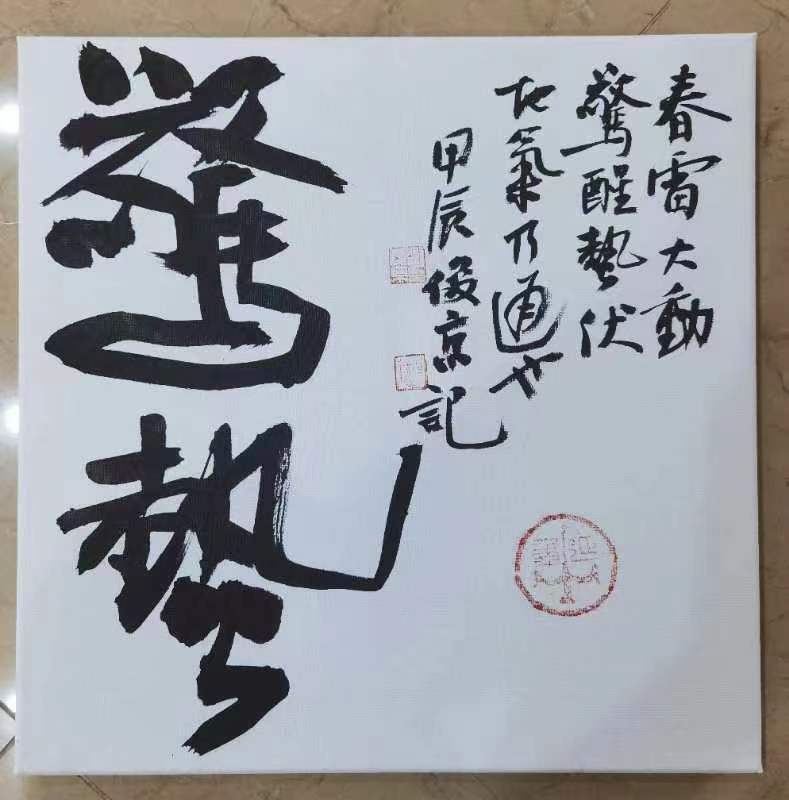 春雷大動
驚醒蟄伏
地氣乃通也
甲辰俊京記
驚蟄